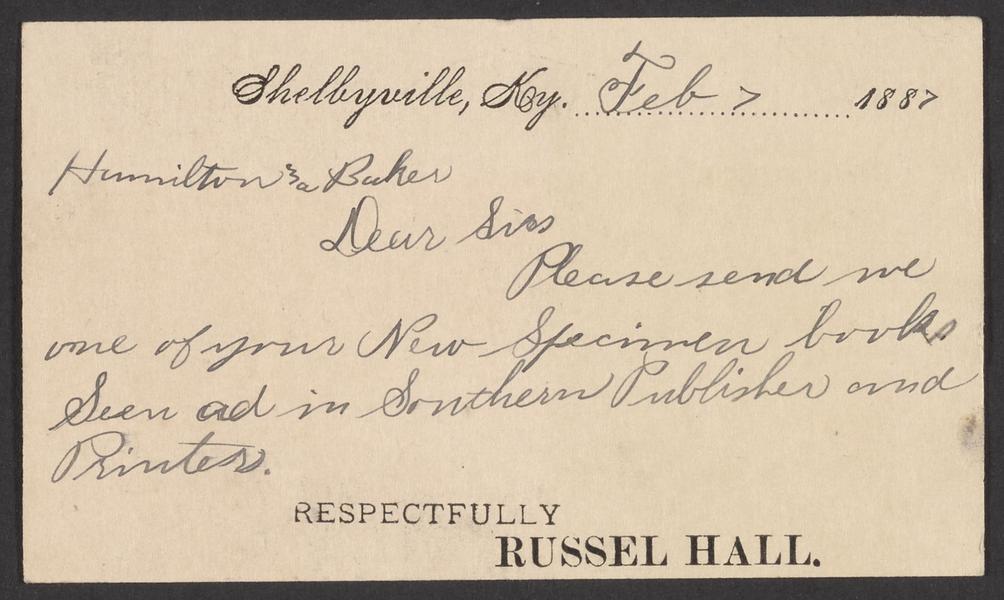 Shelbyville, Ky. Feb 7 1887
Hamilton & Baker
Dear Sirs
Please send me
one of your New Specimen books
Seen ad in Southern Publisher and
Printer.
RESPECTFULLY
RUSSEL HALL.